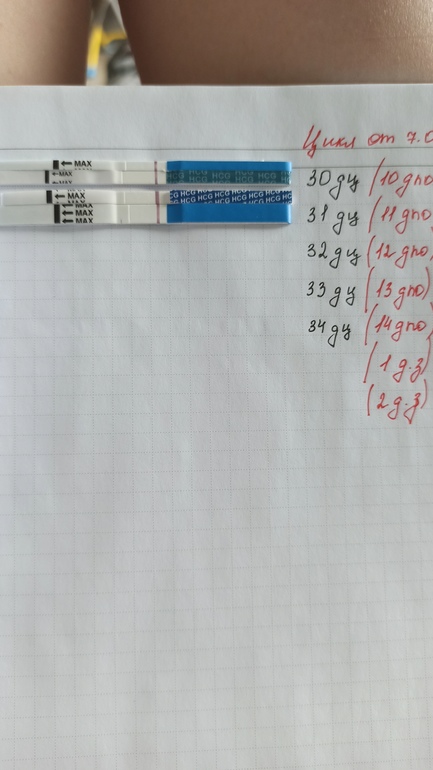 Цикл от 7.0
MAX
HCG HCG HCG HCG
30 дц (10 дпо)
MAX
MAX
HCG HCG HCG HCG HCG HCG
31 дц (11 дпо)
MAX
MAX
32 дц (12 дпо)
33 дц (13 дпо)
34 дц (14 дпо)
(1 д.з)
(2 д.з)